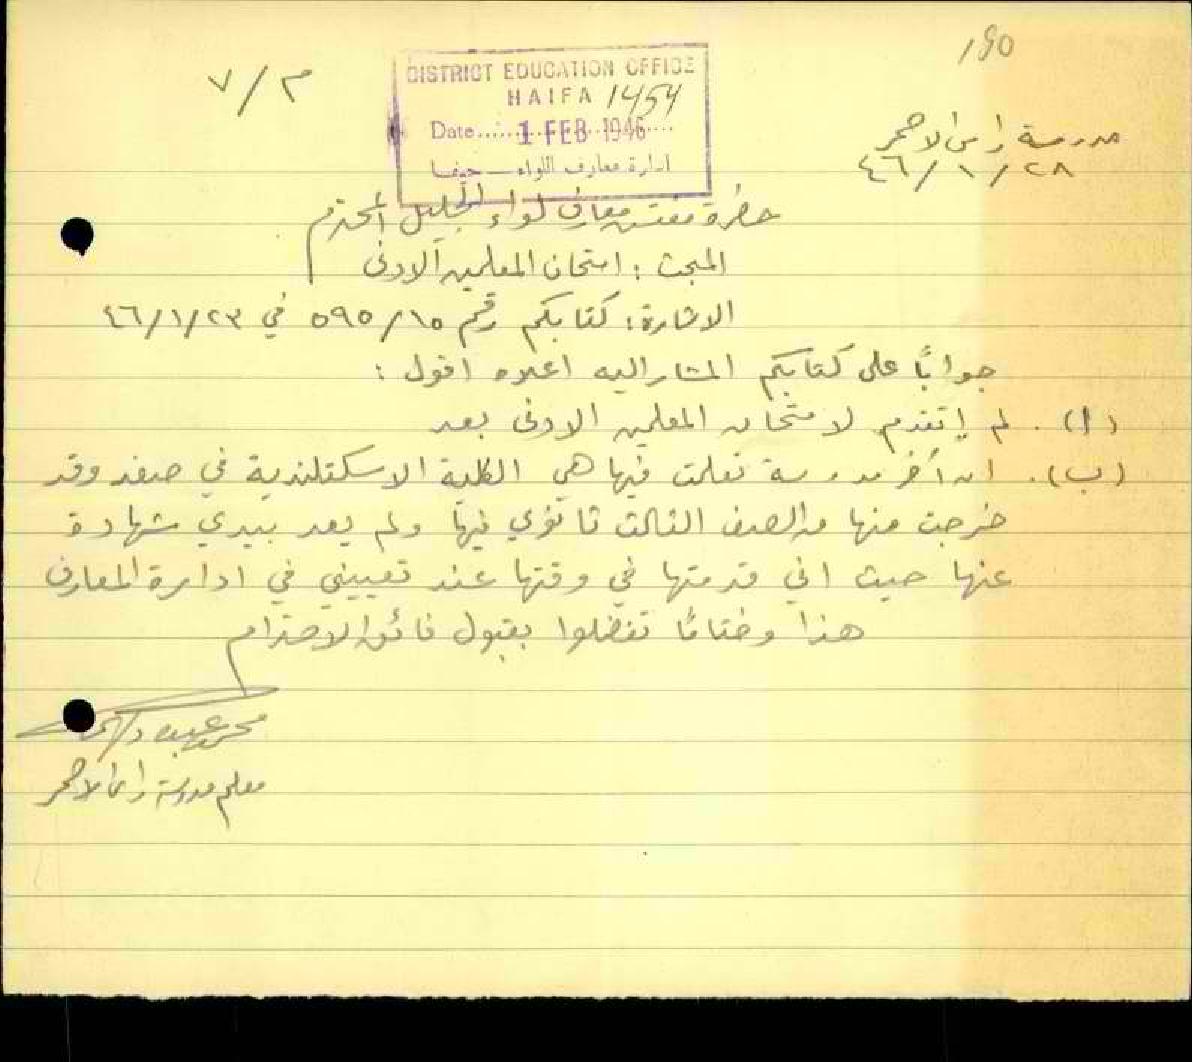 190
م/٧
DISTRICT EDUCATION OFFICE
HAIFA 1454
Date 1 FEB 1946
ادارة معارف اللواء — حيفا
مدرسة راس الاحمر
٢٨/١/٤٦
حضرة مفتش معارف لواء الجليل المحترم
المبحث : امتحان المعلمين الادنى
الاشارة : كتابكم رقم ٥٩٥/١٥ في ٤٦/١/٢٣
جوابًا على كتابكم المشار اليه اعلاه اقول :
(ا) . لم اتقدم لامتحان المعلمين الادنى بعد
(ب) . ان آخر مدرسة تعلمت فيها هي الكلية الاسكتلندية في صفد وقد
خرجت منها من الصف الثالث ثانوي فيها ولم يعد بيدي شهادة
عنها حيث اني قدمتها في وقتها عند تعييني في ادارة المعارف
هذا وختامًا تفضلوا بقبول فائق الاحترام
محمد
معلم مدرسة راس الاحمر